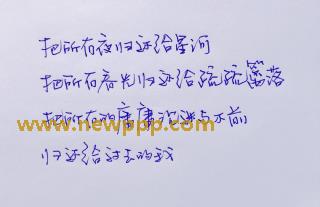 把所有夜归还给星河
把所有春光归还给疏疏篱落
把所有的慵慵沉迷与不前
归还给过去的我
www.newppp.com